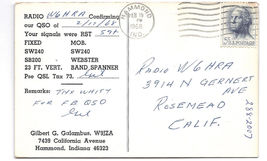 RADIO W6HRA Confirming
our QSO of 2/17/68
Your signals were RST 59+
FIXED MOB.
SW240 SW240
SB200 - WEBSTER
23 FT. VERT. BAND SPANNER
Pse QSL Tax 73.
Remarks: TNX WHITY
FOR FB QSO
Gilbert G. Galambus, W9IZA
7439 California Avenue
Hammond, Indiana 46323
HAMMOND
PM
1968
IND.
U.S. POSTAGE
RADIO W6HRA
3914 N GERNERT
AVE
ROSEMEAD
CALIF.
288-2007